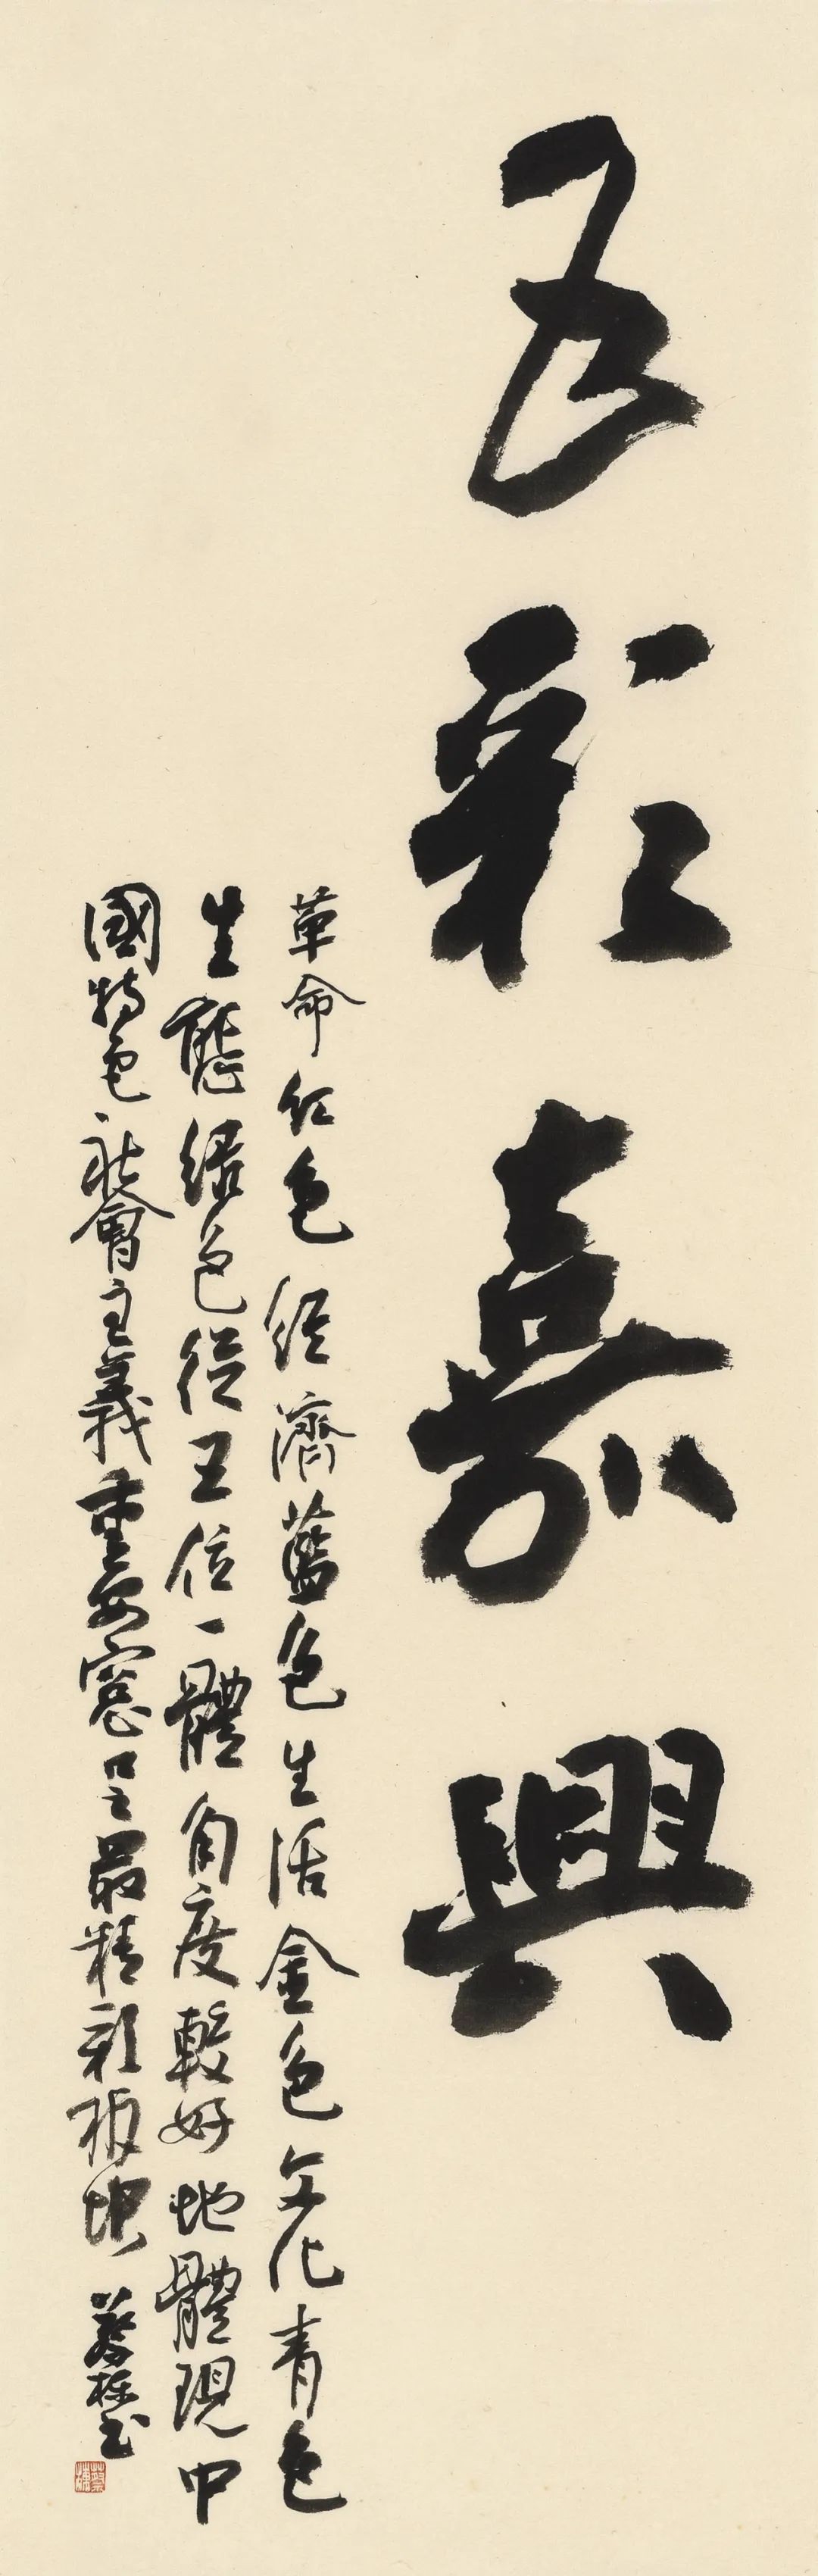 五彩嘉興
革命红色经濟藍色生活金色文化青色
生態绿色從五位一體角度較好地體現中
國特色社會主義重要窗口最精彩板塊 蔡樑书
蔡樑